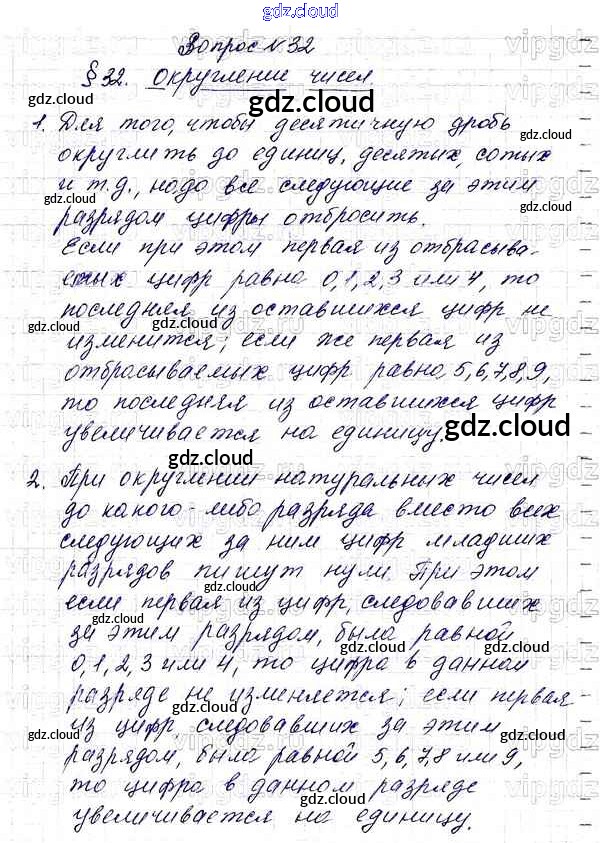 gdz.cloud
Вопрос №32
§32. Округление чисел.
1. Для того, чтобы десятичную дробь
округлить до единиц, десятых, сотых
и т.д., надо все следующие за этим
разрядом цифры отбросить.
Если при этом первая из отбрасыва-
емых цифр равна 0,1,2,3 или 4, то
последняя из оставшихся цифр не
изменится; если же первая из
отбрасываемых цифр равна 5,6,7,8,9,
то последняя из оставшихся цифр
увеличивается на единицу.
2. При округлении натуральных чисел
до какого-либо разряда вместо всех
следующих за ним цифр младших
разрядов пишут нули. При этом
если первая из цифр, следовавших
за этим разрядом, была равной
0,1,2,3 или 4, то цифра в данном
разряде не изменяется; если первая
из цифр, следовавших за этим
разрядом, была равной 5,6,7,8 или 9,
то цифра в данном разряде
увеличивается на единицу.